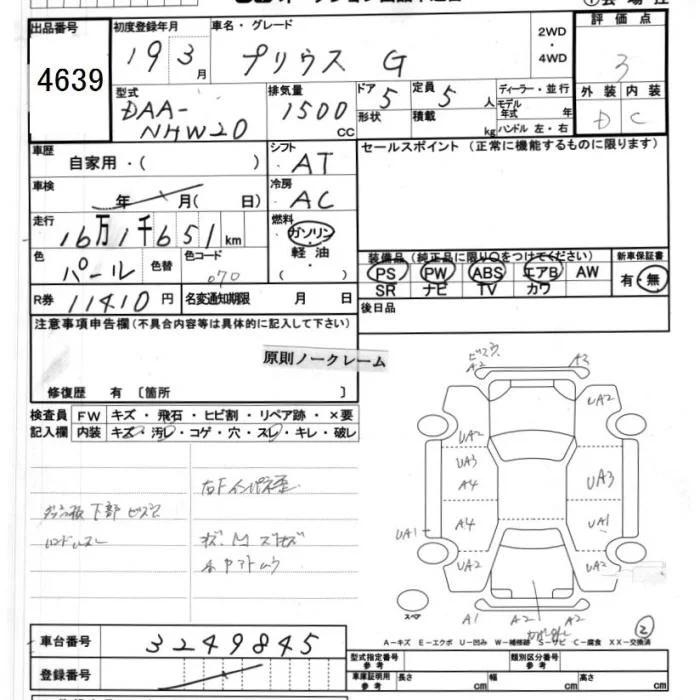 出品番号
4639
初度登録年月
19 3月
車名・グレード
プリウス G
2WD
・
4WD
評価点
3
型式
DAA-
NHW20
排気量
1500
CC
ドア 5
形状
定員 5 人
積載 kg
ディーラー・並行
モデル年式 年
ハンドル 左・右
外装 内装
D C
車歴
自家用・( )
シフト
AT
セールスポイント(正常に機能するものに限ります)
車検
年 月( 日)
冷房
AC
走行
16万1千651km
燃料
ガソリン
軽油
( )
色
パール
色替
色コード
070
装備品(純正品に限り○をつけてください)
新車保証書
PS PW ABS エアB AW
SR ナビ TV カワ
有・無
R券 11410円
名変通知期限 月 日
後日品
注意事項申告欄(不具合内容等は具体的に記入して下さい)
原則ノークレーム
修復歴 有 〔箇所 〕
検査員 FW キズ・飛石・ヒビ割・リペア跡・×要
記入欄 内装 キズ・汚レ・コゲ・穴・スレ・キレ・破レ
A2 A2
UA2 UA2
UA3 UA3
A4
A4 UA1
UA1
UA2 UA2
スペア
A1 A2 A2
2
A-キズ E-エクボ U-凹み W-補修跡 S-サビ C-腐食 XX-交換済
車台番号
3249845
登録番号
型式指定番号
参考
類別区分番号
参考
車庫証明用
参考
長さ cm
幅 cm
高さ cm